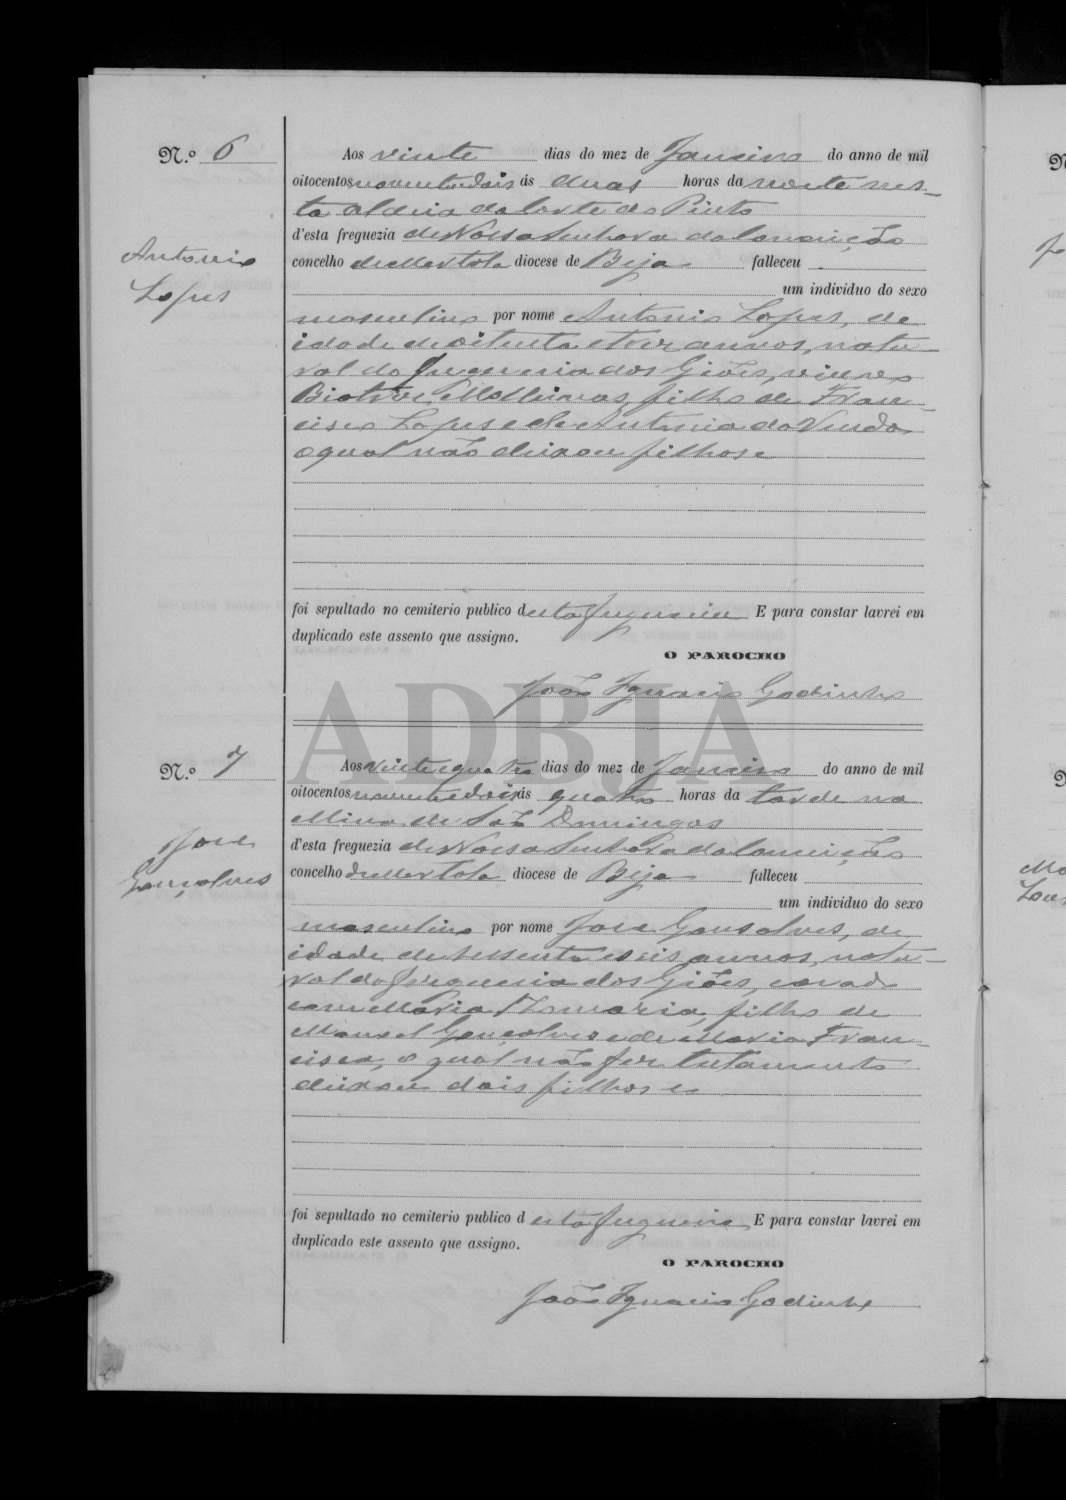 N.º 6
Antonio
Lopes
Aos vinte dias do mez de Janeiro do anno de mil
oitocentos noventa e dois ás duas horas da noite nes-
ta aldeia da Corte do Pinto
d'esta freguezia de Nossa Senhora da Conceição
concelho de Mertola diocese de Beja falleceu
um individuo do sexo
masculino por nome Antonio Lopes, de
idade de oitenta e tres annos, natu-
ral da freguezia dos Giões, viuvo
Biatris, filho de Fran-
cisco Lopes e de Antonia da
o qual não deixou filhos e
foi sepultado no cemiterio publico d esta freguezia E para constar lavrei em
duplicado este assento que assigno.
O PAROCHO
João Ignacio Godinho
ADBJA
N.º 7
Jose
Gonçalves
Aos vinte e quatro dias do mez de Janeiro do anno de mil
oitocentos noventa e dois ás quatro horas da tarde na
Mina de São Domingos
d'esta freguezia de Nossa Senhora da Conceição
concelho de Mertola diocese de Beja falleceu
um individuo do sexo
masculino por nome Jose Gonsalves, de
idade de sessenta e seis annos, natu-
ral da freguezia dos Giões, casado
com Maria, filho de
Manoel Gonçalves e de Maria Fran-
cisca, o qual não fez testamento
deixou dois filhos e
foi sepultado no cemiterio publico d esta freguezia E para constar lavrei em
duplicado este assento que assigno.
O PAROCHO
João Ignacio Godinho